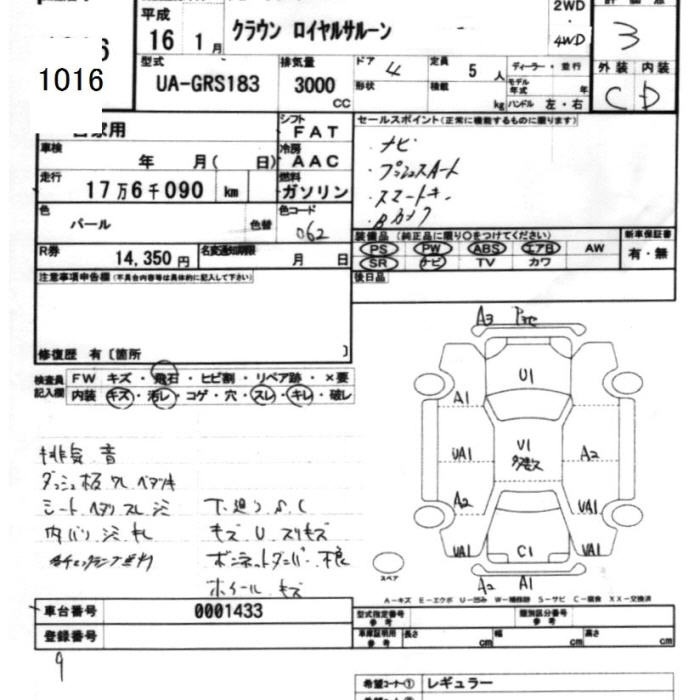 平成 16 1月
クラウン ロイヤルサルーン
2WD
・
4WD
3
1016
型式 UA-GRS183
排気量 3000 CC
ドア 4 定員 5 人 ディーラー・並行
形状 積載 kg モデル年式 年
ハンドル 左・右
外装 内装
C D
自家用
シフト FAT
車検 年 月( 日)
冷房 AAC
走行 17万6千090 km
燃料 ガソリン
色 パール 色替
色コード 062
R券 14,350円
名変通知期限 月 日
セールスポイント(正常に機能するものに限ります)
・ナビ
・プッシュスタート
・スマートキー
・Bカメラ
装備品 (純正品に限り〇をつけてください)
PS PW ABS エアB AW
SR ナビ TV カワ
新車保証書
有・無
後日品
注意事項申告欄(不具合内容等は具体的に記入して下さい)
修復歴 有〔箇所 〕
検査員記入欄
FW キズ・飛石・ヒビ割・リペア跡・×要
内装 キズ・汚レ・コゲ・穴・スレ・キレ・破レ
排気 音
シート ヘタリ スレ シミ
下廻り サビ
キズ U スリキズ
ボンネットダンパー 不良
ホイール キズ
A3
U1
A1
UA1
A2
UA1
V1
A2
UA1
UA1
C1
A2 A1
スペア
A-キズ E-エクボ U-凹み W-補修跡 S-サビ C-腐食 XX-交換済
車台番号 0001433
登録番号
型式指定番号 参考
類別区分番号 参考
車庫証明用 参考 長さ cm 幅 cm 高さ cm
9
希望コーナー① レギュラー